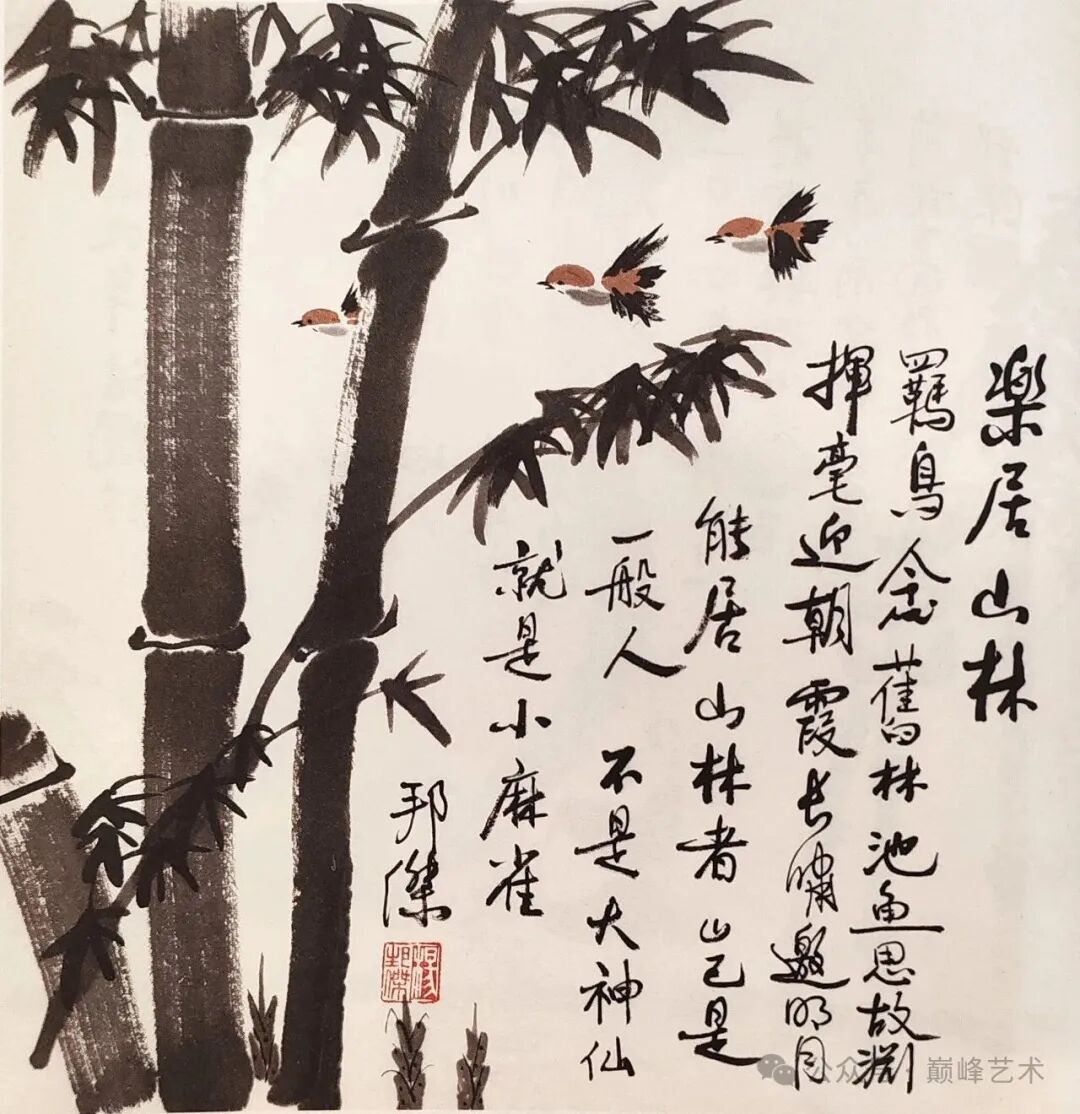 楽居山林
羈鳥念舊林池鱼思故渊
揮毫迎朝霞长嘯邀明月
能居山林者 岂是
一般人 不是大神仙
就是小麻雀
邦傑
公众号 · 巅峰艺术